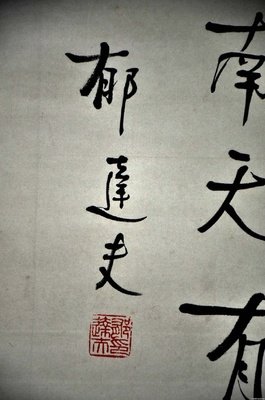 南天有
郁達夫